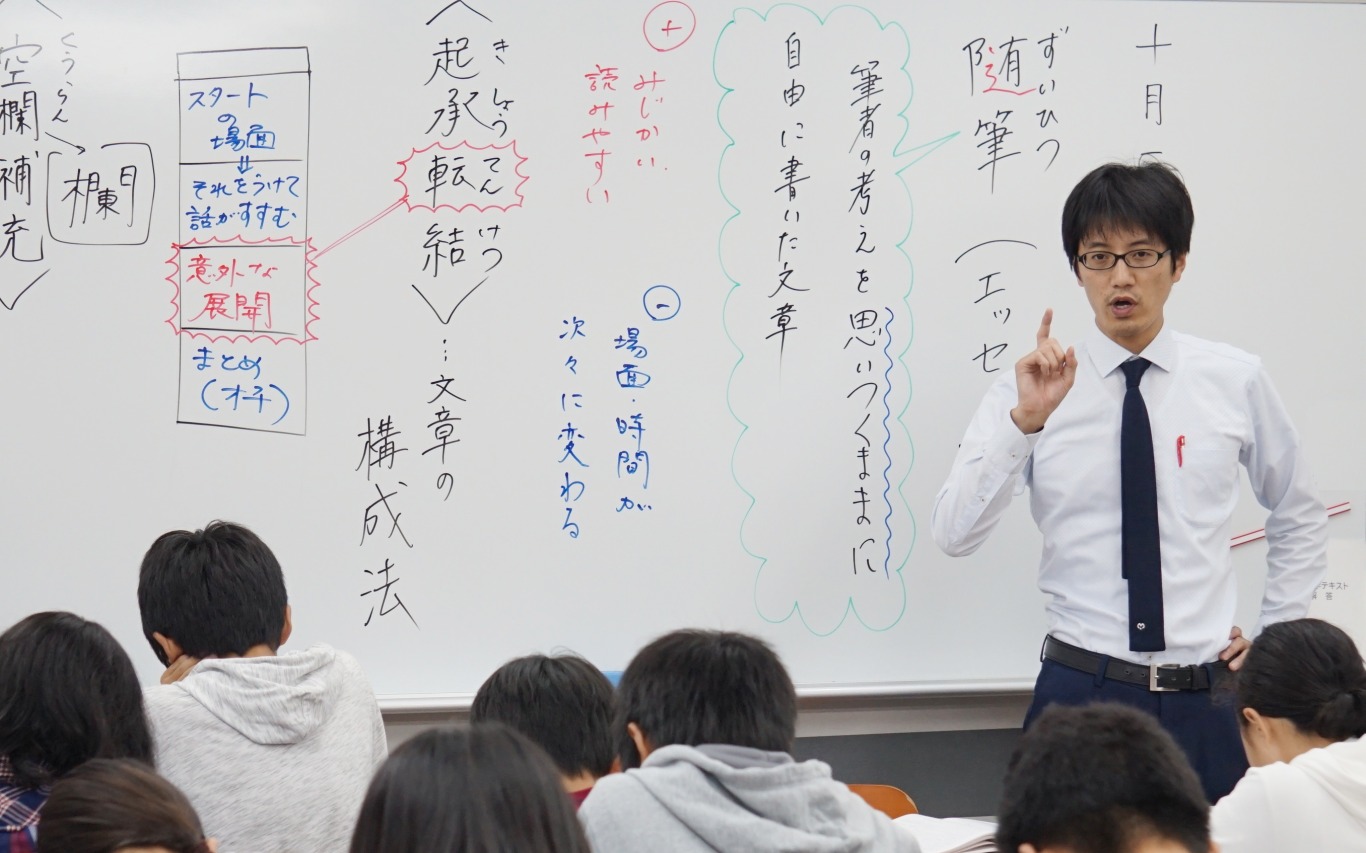 十月
ずいひつ
随筆
(エッセ
筆者の考えを思いつくままに
自由に書いた文章
+
みじかい
読みやすい
-
場面・時間が
次々に変わる
きしょうてんけつ
〈起承転結〉…文章の
構成法
スタート
の
場面
⇓
それをうけて
話がすすむ
意外な
展開
まとめ
(オチ)
くうらん
空欄補充〉
欄
テキスト